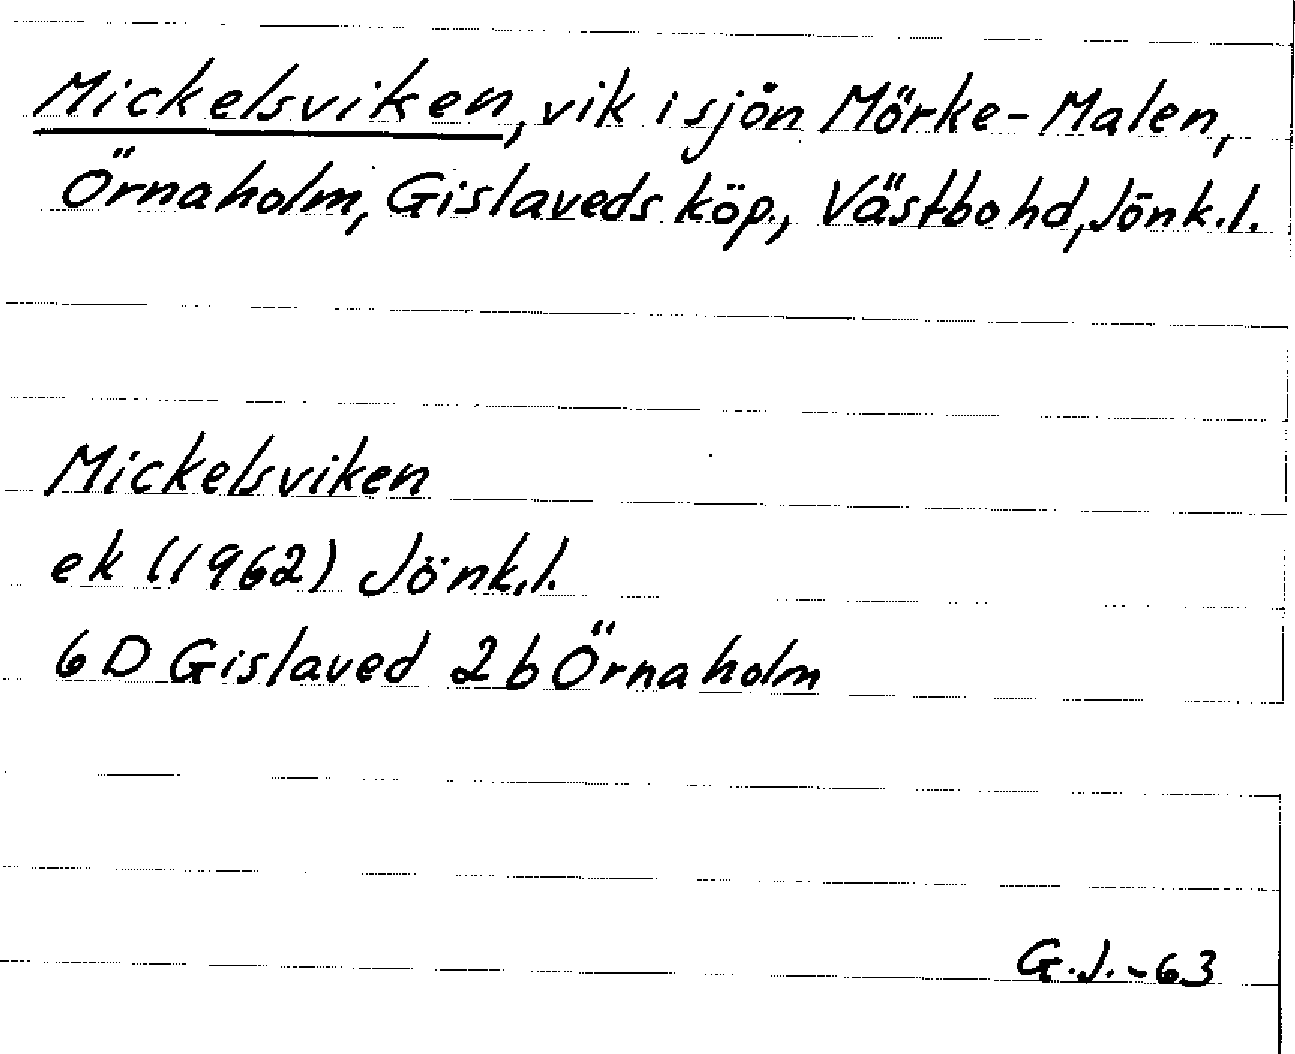 Mickelsviken, vik i sjön Mörke-Malen,
Örnaholm, Gislaveds köp., Västbo hd, Jönk.l.
Mickelsviken
ek (1962) Jönk.l.
6D Gislaved 2b Örnaholm
G.J.-63